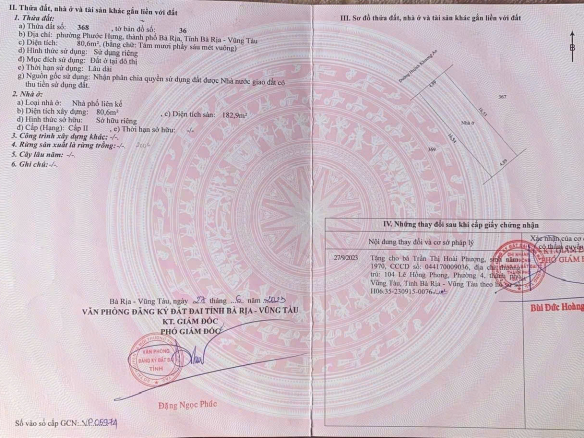 II. Thửa đất, nhà ở và tài sản khác gắn liền với đất
1. Thửa đất:
a) Thửa đất số: 368, tờ bản đồ số: 36
b) Địa chỉ: phường Phước Hưng, thành phố Bà Rịa, Tỉnh Bà Rịa - Vũng Tàu
c) Diện tích: 80,6m², (bằng chữ: Tám mươi phẩy sáu mét vuông)
d) Hình thức sử dụng: Sử dụng riêng
đ) Mục đích sử dụng: Đất ở tại đô thị
e) Thời hạn sử dụng: Lâu dài
g) Nguồn gốc sử dụng: Nhận phân chia quyền sử dụng đất được Nhà nước giao đất có
thu tiền sử dụng đất.
2. Nhà ở:
a) Loại nhà ở: Nhà phố liên kế
b) Diện tích xây dựng: 80,6m², c) Diện tích sàn: 182,9m²
d) Hình thức sở hữu: Sở hữu riêng
đ) Cấp (Hạng): Cấp II , e) Thời hạn sở hữu: -/-
3. Công trình xây dựng khác: -/-
4. Rừng sản xuất là rừng trồng: -/-
5. Cây lâu năm: -/-
6. Ghi chú: -/-
Bà Rịa - Vũng Tàu, ngày 28 tháng 6 năm 2023
VĂN PHÒNG ĐĂNG KÝ ĐẤT ĐAI TỈNH BÀ RỊA - VŨNG TÀU
KT. GIÁM ĐỐC
PHÓ GIÁM ĐỐC
VĂN PHÒNG
ĐĂNG KÝ ĐẤT ĐAI
TỈNH
Đặng Ngọc Phúc
Số vào sổ cấp GCN: VP05974
III. Sơ đồ thửa đất, nhà ở và tài sản khác gắn liền với đất
B
Đường Huỳnh Khương An
367
Nhà ở
369
IV. Những thay đổi sau khi cấp giấy chứng nhận
Nội dung thay đổi và cơ sở pháp lý
Xác nhận của cơ
có thẩm quyền
27/9/2023
Tặng cho bà Trần Thị Hoài Phượng, sinh năm
1970, CCCD số: 044170009036, địa chỉ thường
trú: 104 Lê Hồng Phong, Phường 4, thành phố
Vũng Tàu, Tỉnh Bà Rịa - Vũng Tàu theo hồ sơ số
H06.35-230915-0076
PHÓ GIÁM
Bùi Đức Hoàng